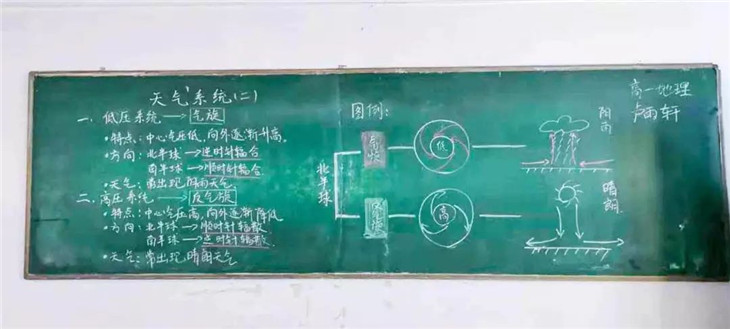 天气系统(二)
一、低压系统 → 气旋
•特点:中心气压低,向外逐渐升高。
•方向:北半球→逆时针辐合
南半球→顺时针辐合
•天气:常出现阴雨天气
二、高压系统 → 反气旋
•特点:中心气压高,向外逐渐降低
•方向:北半球→顺时针辐散
南半球→逆时针辐散
•天气:常出现晴朗天气
图例:
北半球
气旋
低
阴雨
反气旋
高
晴朗
高一地理